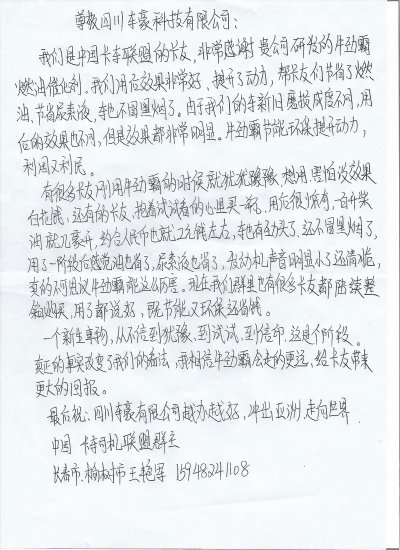 尊敬四川车豪科技有限公司：
我们是中国卡车联盟的卡友，非常感谢贵公司研发的牛劲霸
燃油催化剂。我们用后效果非常好，提升了动力，帮卡友们节省了燃
油，节省尿素液，车也不冒黑烟了。由于我们的车新旧磨损成度不同，用
后的效果也不同，但是效果都非常明显。牛劲霸节能环保提升动力，
利国又利民。
有很多卡友刚用牛劲霸的时候就犹犹豫豫，想用害怕没效果
白花钱，还有的卡友，抱着试试看的心里买一瓶，用后很惊奇，一百公里
油就几毫升，约合人民币也就2元钱左右，车也有劲头了，还不冒黑烟了，
用了一阶段后感觉油也省了，尿素液也省了，发动机声音明显小了还清脆，
变的不可思议牛劲霸能这么厉害。现在我们群里也有很多卡友都陆续差
钩购买，用了都说好，既节能又环保还省钱。
一个新生事物，从不信到犹豫，到试试，到信卬，这是个阶段。
真正的事实改变了我们的看法，我相信牛劲霸会走的更远，给卡友带来
更大的回报。
最后祝：四川车豪有限公司越办越好，冲出亚洲，走向世界.
中国 卡车司机联盟群主
长春市.榆树市王艳军 15948241108